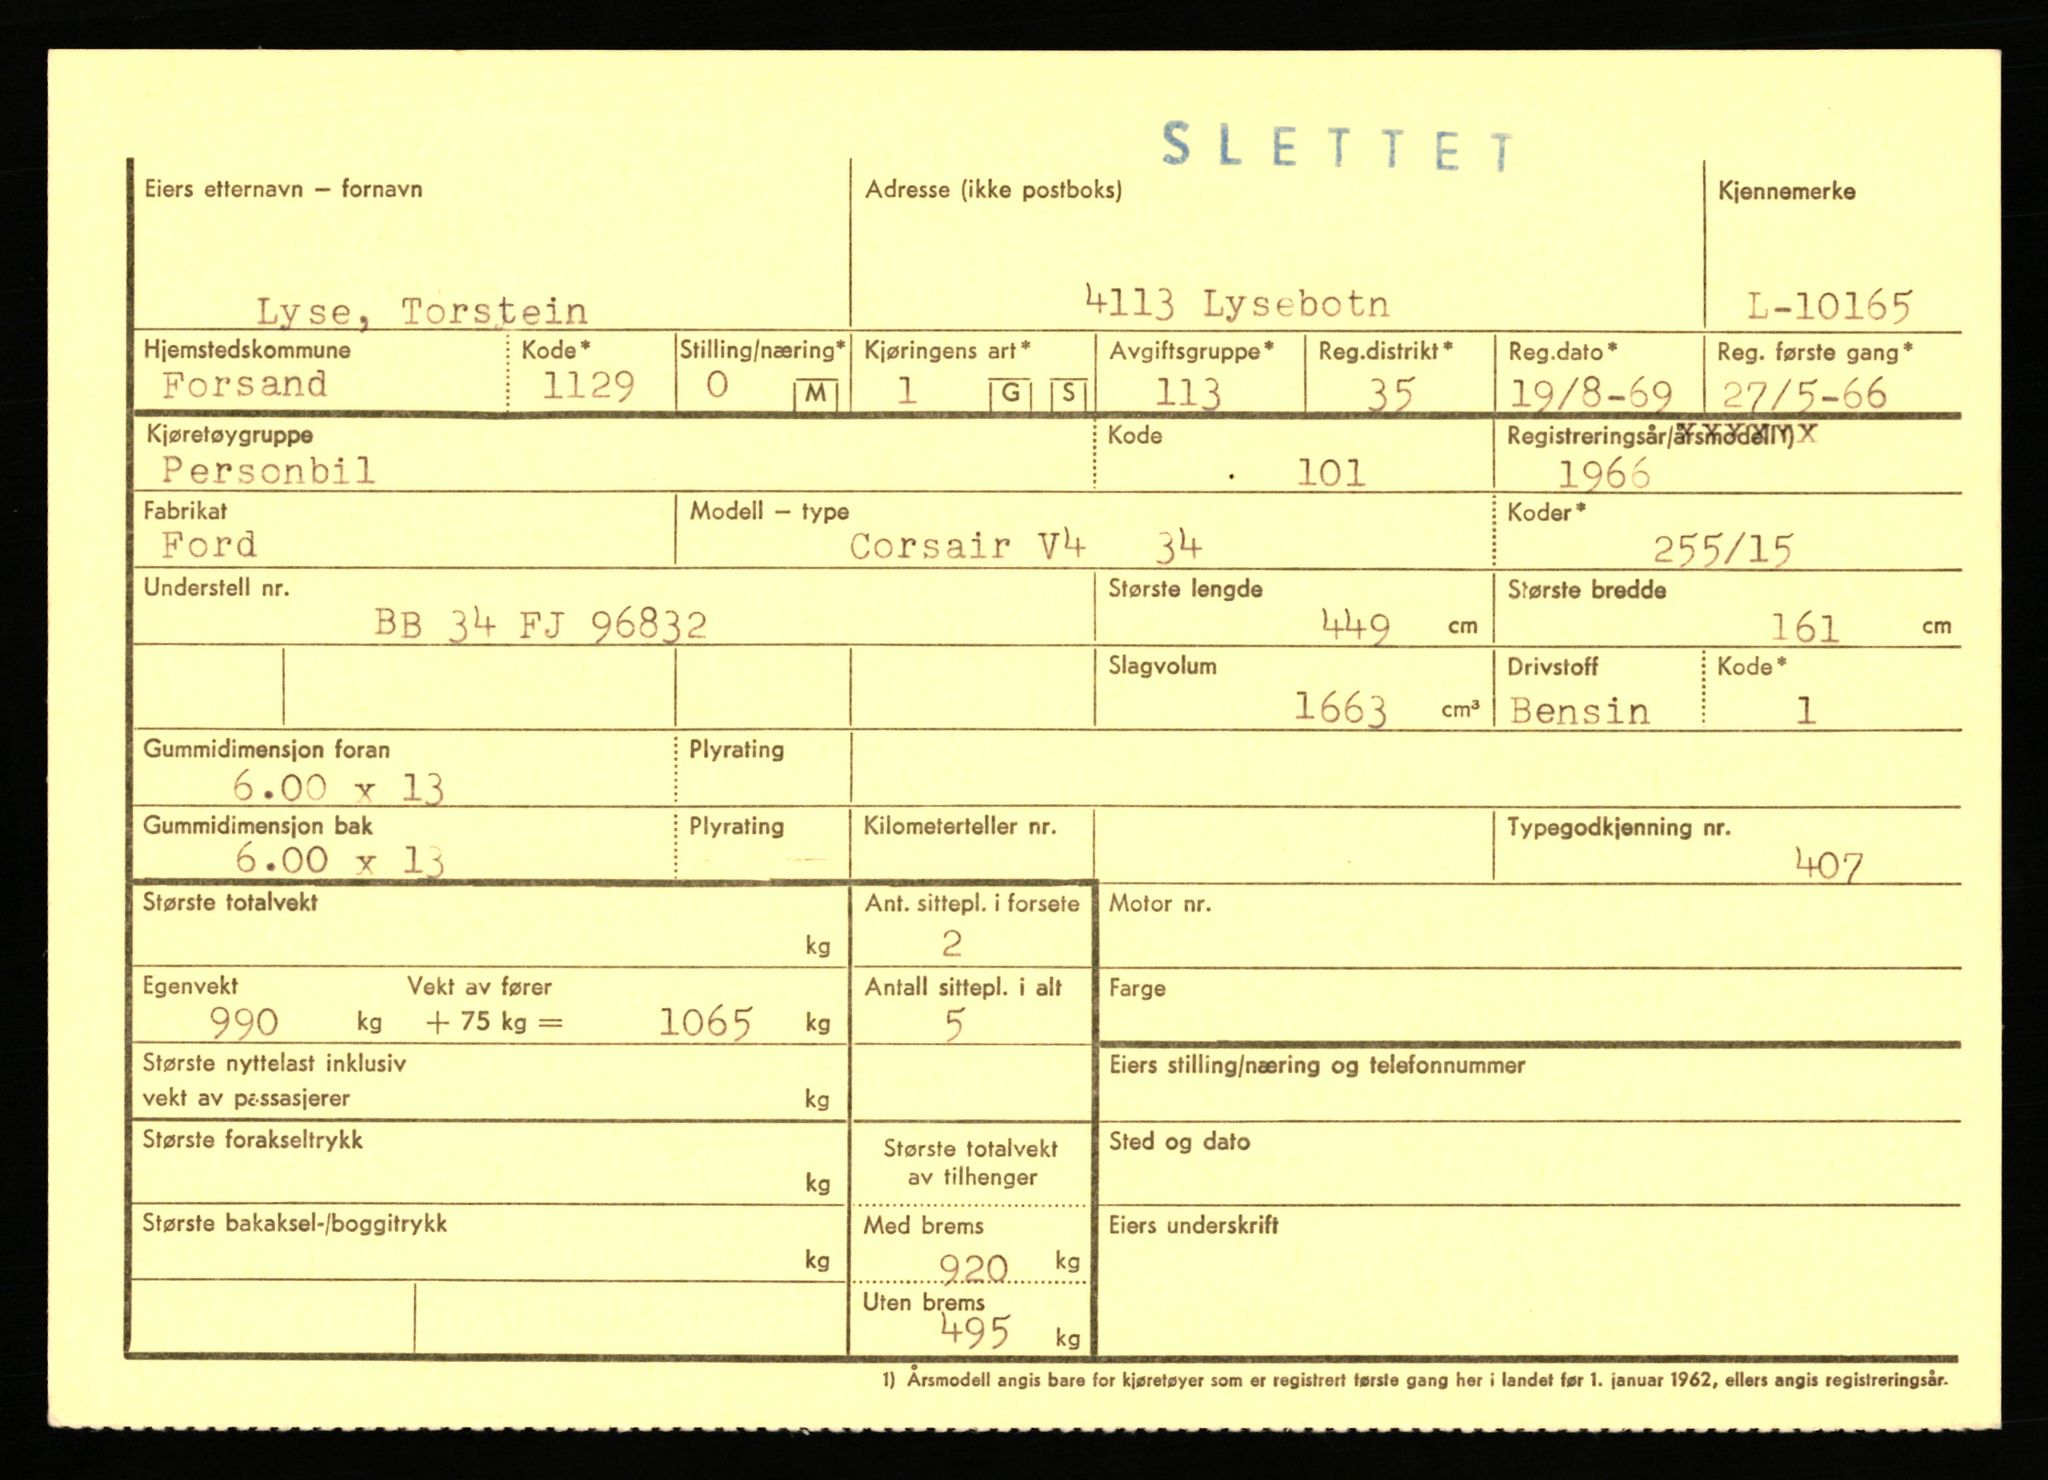 SLETTET
Eiers etternavn – fornavn Adresse (ikke postboks) Kjennemerke
Lyse, Torstein 4113 Lysebotn L-10165
Hjemstedskommune Kode* Stilling/næring* Kjøringens art* Avgiftsgruppe* Reg.distrikt* Reg.dato* Reg. første gang*
Forsand 1129 0 M 1 G S 113 35 19/8-69 27/5-66
Kjøretøygruppe Kode Registreringsår/årsmodell 1)
Personbil 101 1966
Fabrikat Modell – type Koder*
Ford Corsair V4 34 255/15
Understell nr. Største lengde Største bredde
BB 34 FJ 96832 449 cm 161 cm
Slagvolum Drivstoff Kode*
1663 cm³ Bensin 1
Gummidimensjon foran Plyrating
6.00 x 13
Gummidimensjon bak Plyrating Kilometerteller nr. Typegodkjenning nr.
6.00 x 13 407
Største totalvekt Ant. sittepl. i forsete Motor nr.
kg 2
Egenvekt Vekt av fører Antall sittepl. i alt Farge
990 kg + 75 kg = 1065 kg 5
Største nyttelast inklusiv Eiers stilling/næring og telefonnummer
vekt av passasjerer kg
Største forakseltrykk Største totalvekt Sted og dato
av tilhenger
kg
Største bakaksel-/boggitrykk Med brems Eiers underskrift
kg 920 kg
Uten brems
495 kg
1) Årsmodell angis bare for kjøretøyer som er registrert første gang her i landet før 1. januar 1962, ellers angis registreringsår.